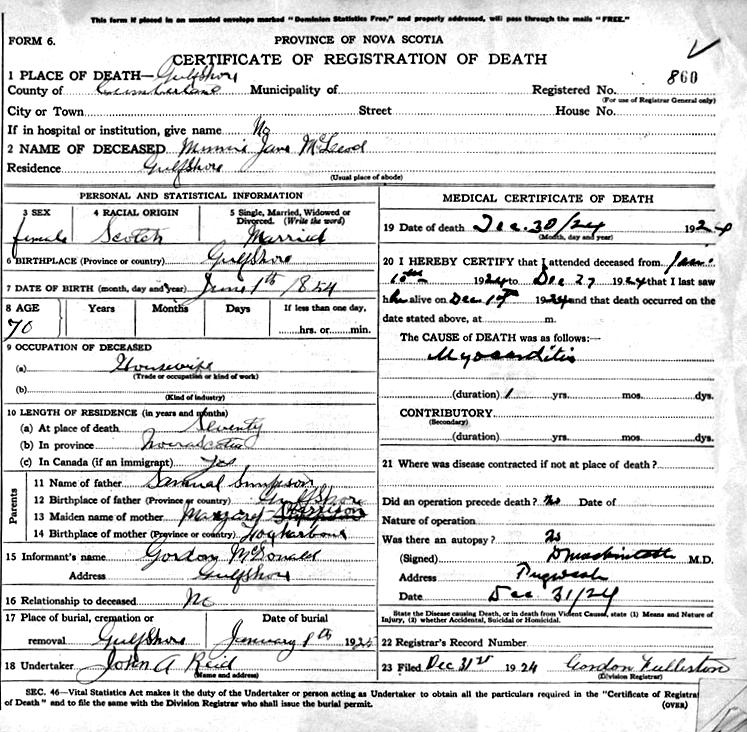 This form if placed in an unsealed envelope marked "Dominion Statistics Free," and properly addressed, will pass through the mails "FREE."
FORM 6.
PROVINCE OF NOVA SCOTIA
CERTIFICATE OF REGISTRATION OF DEATH
860
1 PLACE OF DEATH—Gulf Shore
County of Cumberland Municipality of Registered No.
(For use of Registrar General only)
City or Town Street House No.
If in hospital or institution, give name No
2 NAME OF DECEASED Minnie Jane McLeod
Residence Gulf Shore
(Usual place of abode)
PERSONAL AND STATISTICAL INFORMATION
3 SEX 4 RACIAL ORIGIN 5 Single, Married, Widowed or Divorced. (Write the word)
female Scotch Married
6 BIRTHPLACE (Province or country) Gulf Shore
7 DATE OF BIRTH (month, day and year) June 1th 1854
8 AGE Years Months Days If less than one day,
70 hrs. or min.
9 OCCUPATION OF DECEASED
(a) Housewife
(Trade or occupation or kind of work)
(b)
(Kind of industry)
10 LENGTH OF RESIDENCE (in years and months)
(a) At place of death Seventy
(b) In province Nova Scotia
(c) In Canada (if an immigrant) Yes
Parents
11 Name of father Samuel Simpson
12 Birthplace of father (Province or country) Gulf Shore
13 Maiden name of mother Margaret
14 Birthplace of mother (Province or country) Fox harbour
15 Informant's name Gordon McDonald
Address Gulf Shore
16 Relationship to deceased No
17 Place of burial, cremation or removal Date of burial
Gulf Shore January 1925
18 Undertaker John A Reid
(Name and address)
MEDICAL CERTIFICATE OF DEATH
19 Date of death Dec. 30/24 1924
(Month, day and year)
20 I HEREBY CERTIFY that I attended deceased from Jan.
1924 to Dec 27 1924 that I last saw
her alive on Dec 1924 and that death occurred on the
date stated above, at m.
The CAUSE OF DEATH was as follows:—
Myocarditis
(duration) 1 yrs. mos. dys.
CONTRIBUTORY
(Secondary)
(duration) yrs. mos. dys.
21 Where was disease contracted if not at place of death?
Did an operation precede death? No Date of
Nature of operation
Was there an autopsy? No
(Signed) M.D.
Address Pugwash
Date Dec 31/24
State the Disease causing Death, or in death from Violent Causes, state (1) Means and Nature of Injury, (2) whether Accidental, Suicidal or Homicidal.
22 Registrar's Record Number
23 Filed Dec 31st 1924 Gordon Fullerton
(Division Registrar)
SEC. 46—Vital Statistics Act makes it the duty of the Undertaker or person acting as Undertaker to obtain all the particulars required in the "Certificate of Registra
of Death" and to file the same with the Division Registrar who shall issue the burial permit. (OVER)